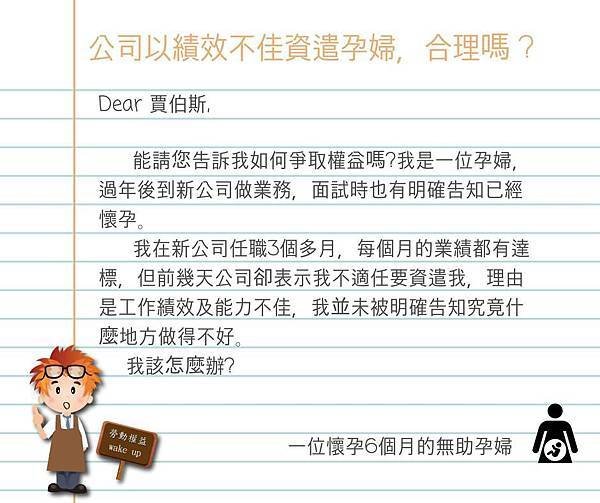 公司以績效不佳資遣孕婦，合理嗎？
Dear 賈伯斯,
能請您告訴我如何爭取權益嗎?我是一位孕婦，
過年後到新公司做業務，面試時也有明確告知已經
懷孕。
我在新公司任職3個多月，每個月的業績都有達
標，但前幾天公司卻表示我不適任要資遣我，理由
是工作績效及能力不佳，我並未被明確告知究竟什
麼地方做得不好。
我該怎麼辦?
勞動權益
wake up
一位懷孕6個月的無助孕婦